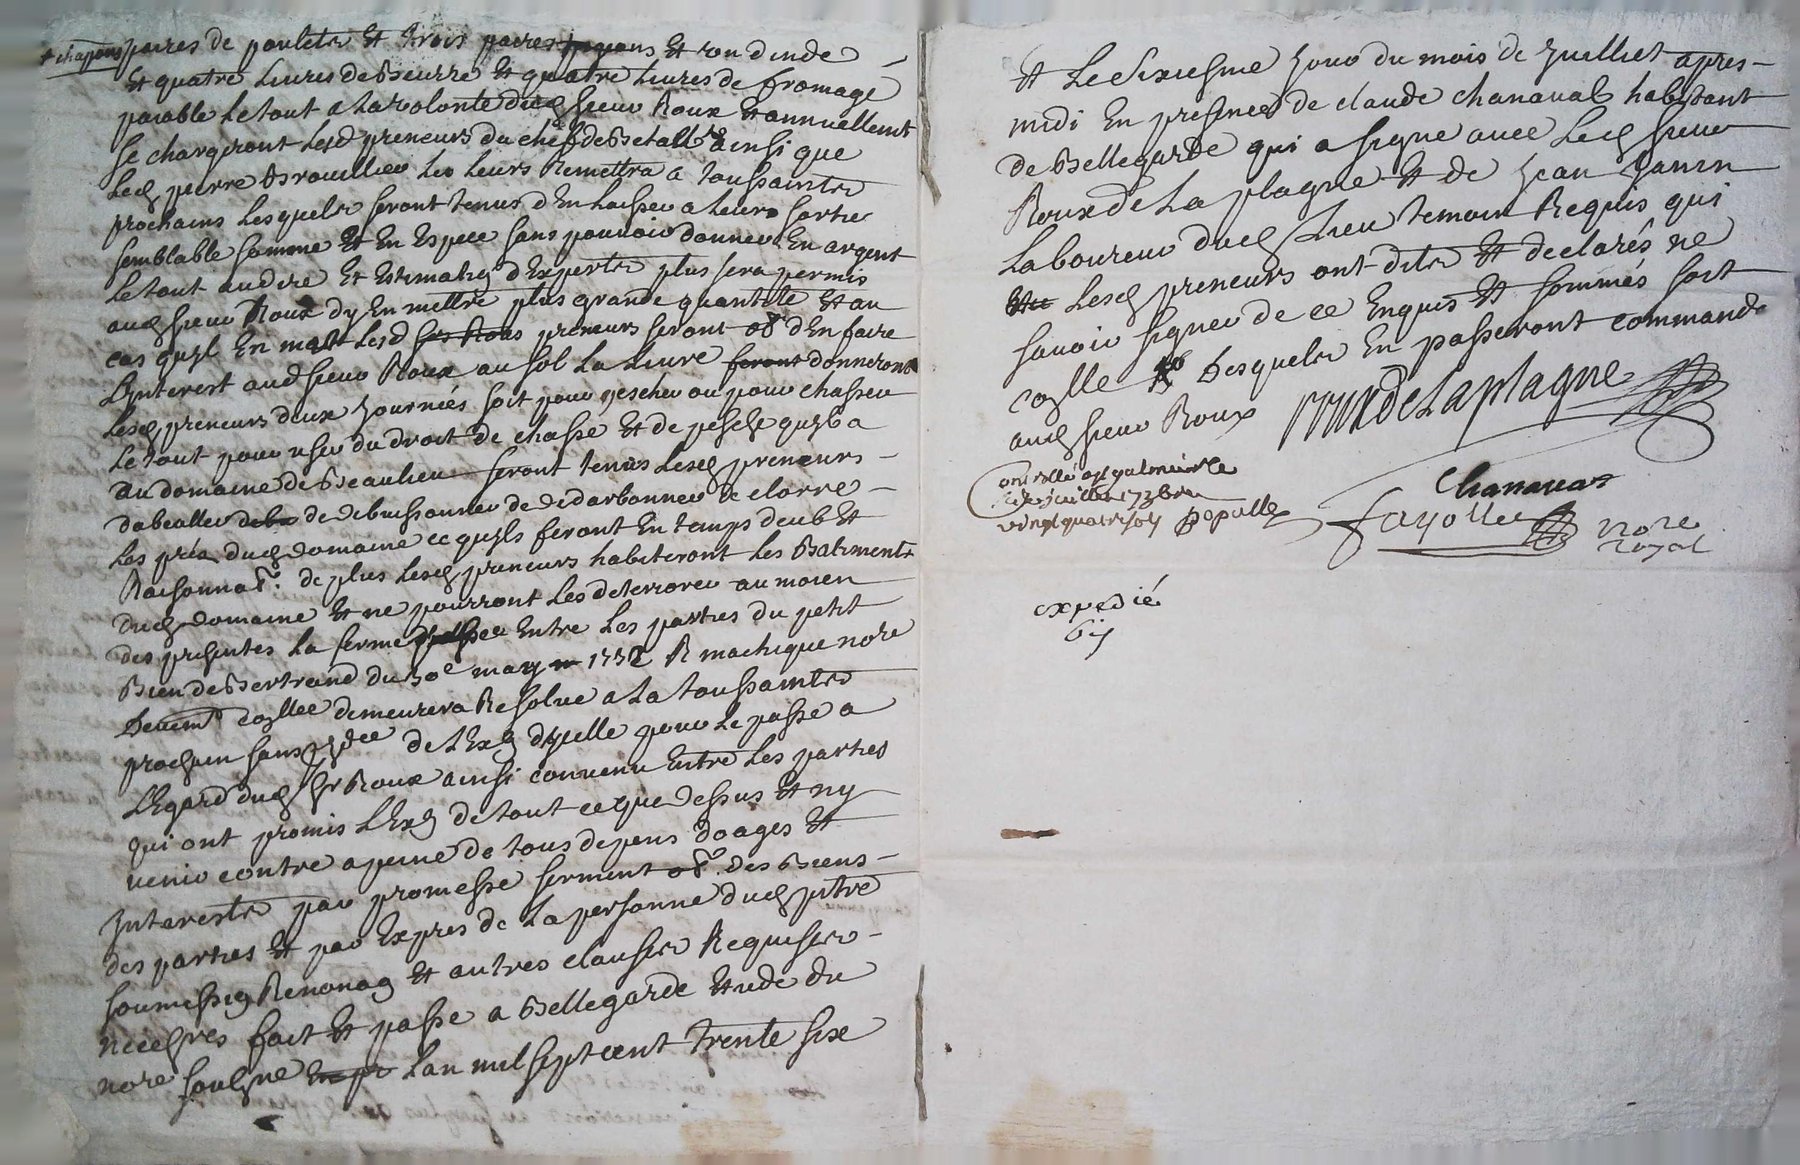 + chapons
paires de pouletz et trois paires et un dinde
et quatre livres de beurre et quatre livres de fromage
paiable le tout a la volonte dud sieur Roux et annuellemt
se chargeront lesd preneurs du chef de betallz ainsi que
led pierre les leurs Remettra a toussaintz
prochains lesquelz seront tenus d'En laisser a leurs sortie
semblable somme Et En Espece sans pouvoir donner En argent
le tout au dire Et Estimation d'Expertz plus sera permis
aud sieur Roux dy En mettre plus grande quantite Et au
cas quyl En mett lesd preneurs seront d'En faire
L'Interest aud sieur Roux au sol la livre seront donneront
lesd preneurs deux journées soit pour pescher ou pour chasser
le tout pour user du droit de chasse Et de pesche quyl a
au domaine de Beaulieu seront tenus lesd preneurs
de debuissonner de de clorre
les prés dud domaine ce quyls feront En temps deub Et
Raisonnat. de plus lesd preneurs habiteront les Batiments
dud domaine Et ne pourront les deteriorer au moien
des presentes la ferme passee Entre les parties du petit
Bien de Bertrand du 30e may 1732 R machique nore
Deuemt collee demeurera Resolue a la toussaintz
prochain sans de lExon dycelle pour le passe a
L'Egard dud sr Roux ainsi convenu Entre les parties
qui ont promis l'Exon de tout ce que dessus Et ny
venir contre a peine de tous depens doages Et
Interestz par promesse serment des Biens
des parties Et par Expres de la personne dud
soumession Renonaon Et autres clauses Requises
necessres fait Et passe a Bellegarde Etude du
nore soulsne Lan mil sept cent trente six
et Le sixiesme jour du mois de juilliet apres
midi En presence de claude chanavat habitant
de Bellegarde qui a signe avec led sieur
Roux de la plagne Et de jean Janin
Laboureur dud lieu temoin Requis qui
lesd preneurs ont ditz Et declarés ne
savoir signer de ce Enquis Et sommés soit
colle desquelz En passeront commande
aud sieur Roux
roux de Laplagne
Controllé a st galmier le
juillet 1736 Reçu
vingt quatre sols
Chanavat
Fayolle
nore
royal
expedié